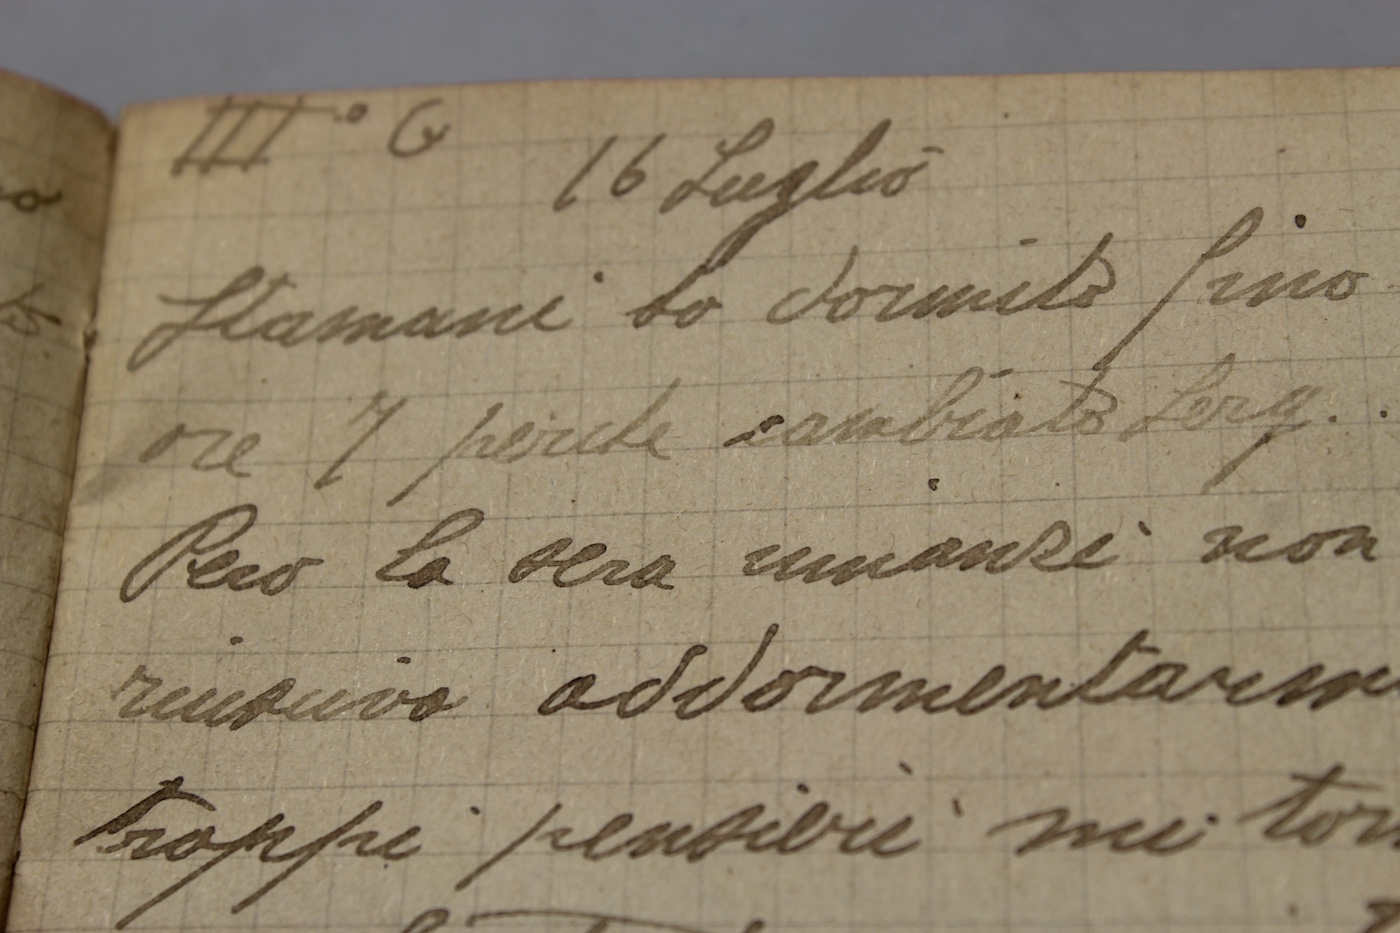 III° G
16 Luglio
Stamani ho dormito fino
ore 7 perche cambiato Serg.
Pero la sera innanzi non
riuscivo addormentarm
troppi pensieri mi tor